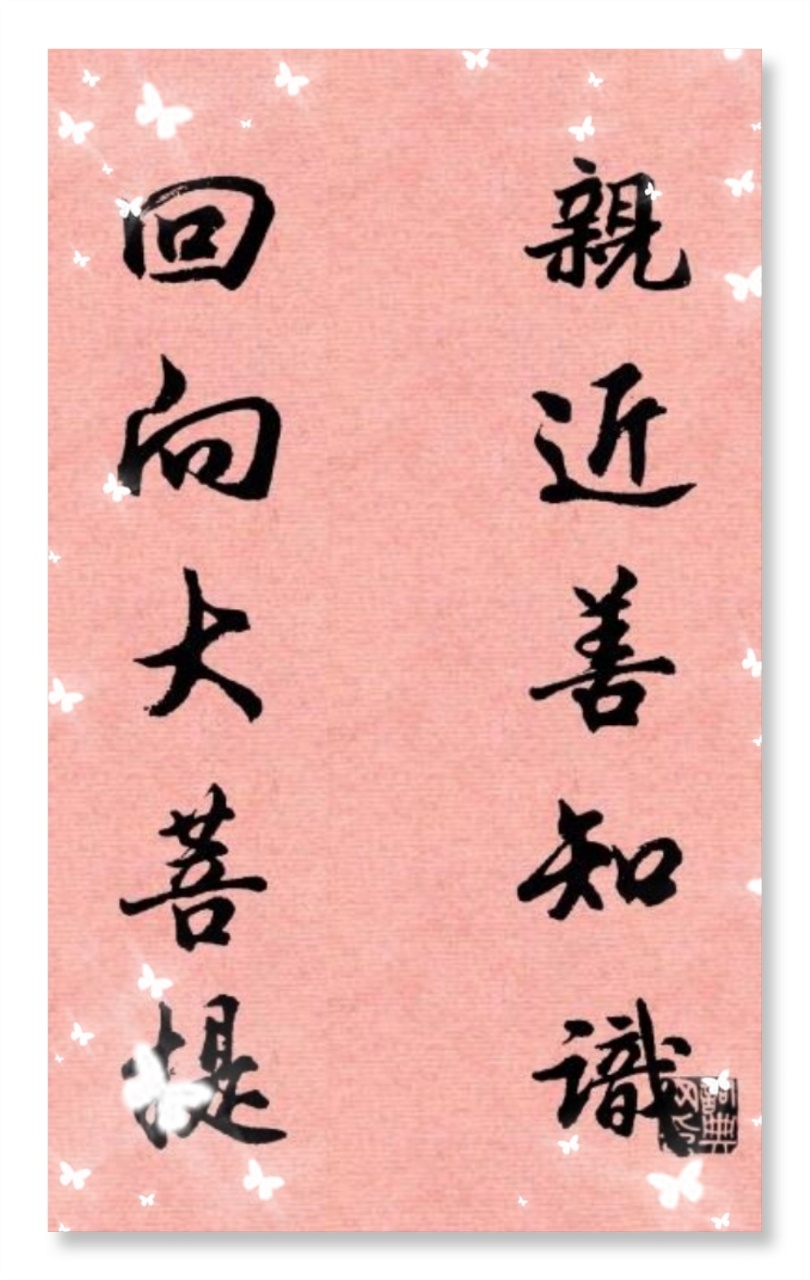 親近善知識
回向大菩提